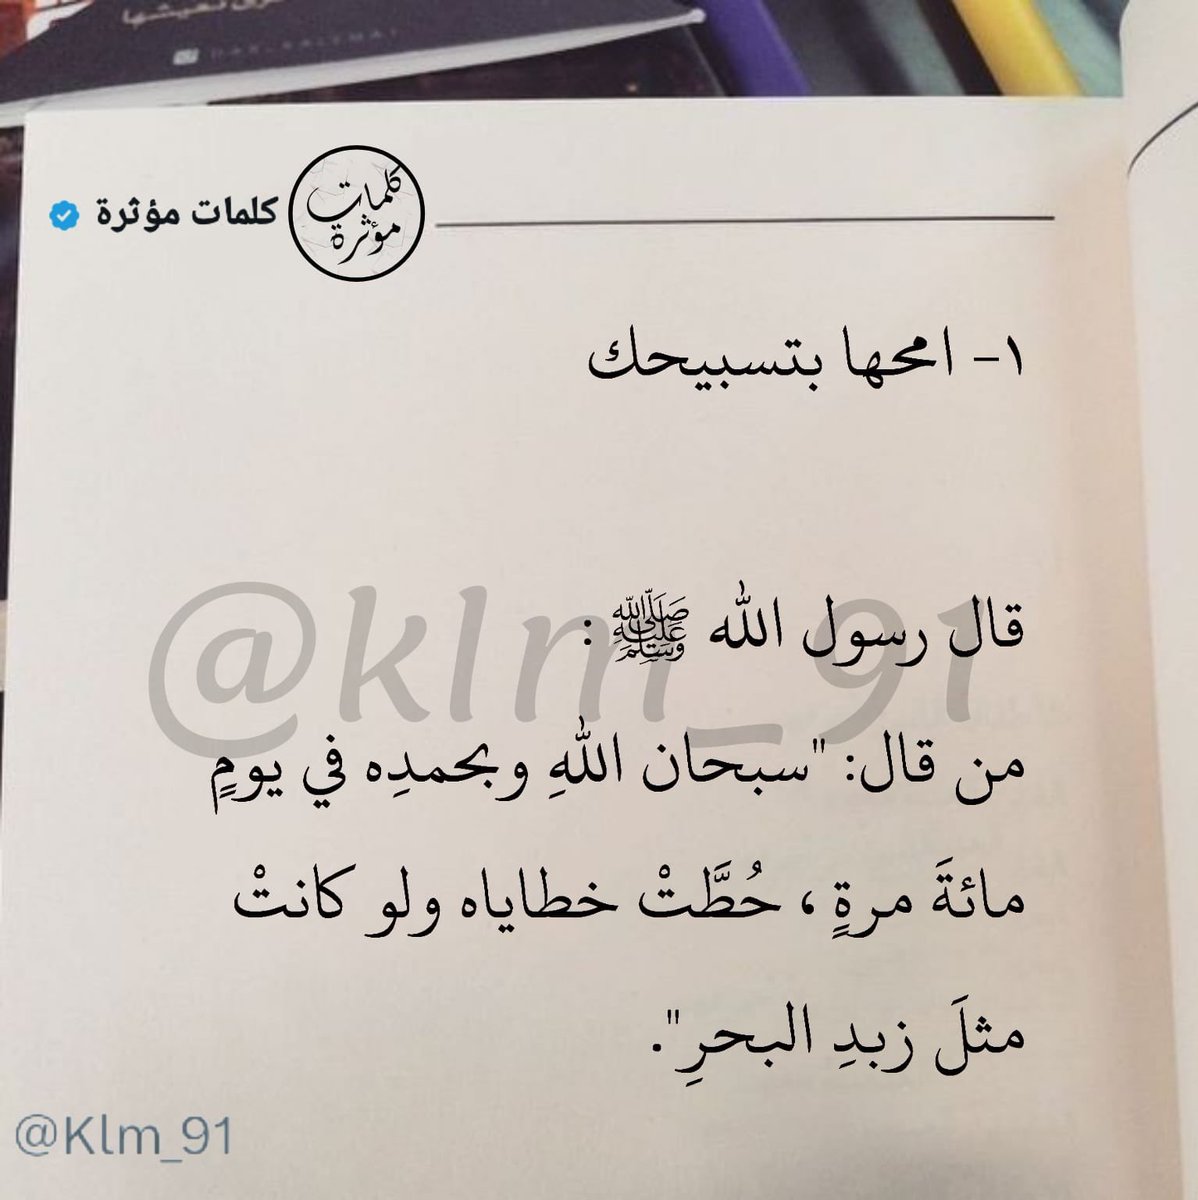 كلمات مؤثرة
كلمات مؤثرة
١- امحها بتسبيحك
قال رسول الله ﷺ :
من قال: "سبحان اللهِ وبحمدِه في يومٍ
مائةَ مرةٍ ، حُطَّتْ خطاياه ولو كانتْ
مثلَ زبدِ البحرِ".
@klm_91
@Klm_91